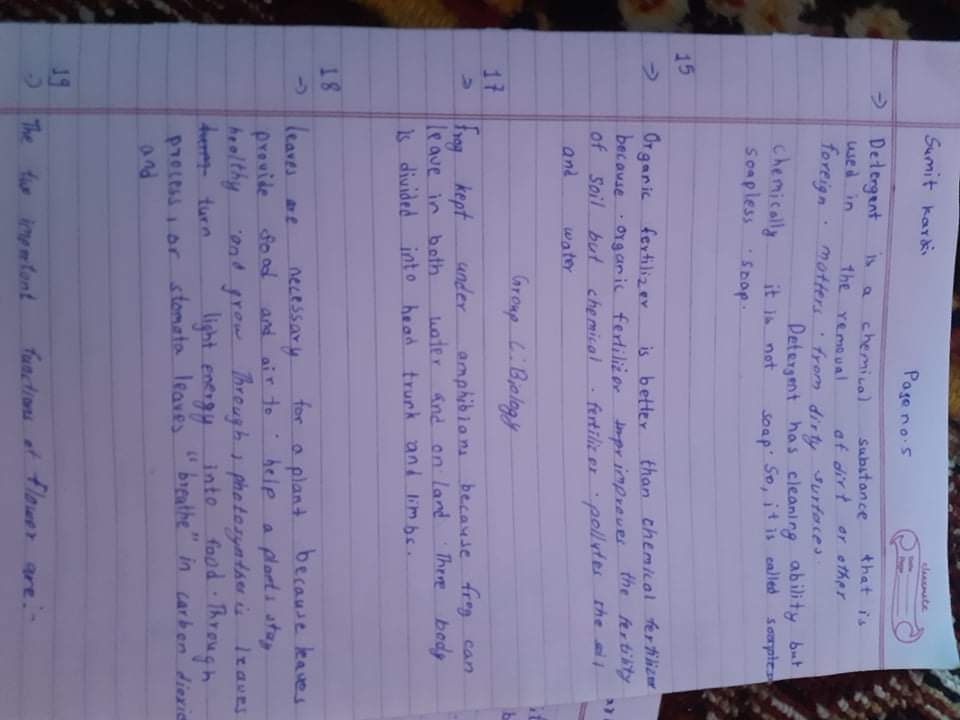 Sumit Karki
Page no: 5
classmate
Date
Page
→ Detergent is a chemical substance that is
used in the removal of dirt or other
foreign matters from dirty surfaces.
Detergent has cleaning ability but
chemically it is not soap. So, it is called soapless
soapless soap.
15
→ Organic fertilizer is better than chemical fertilizer
because organic fertilizer improves the fertility
of soil but chemical fertilizer pollutes the soil
and water
Group C: Biology
17
→ Frog kept under amphibians because frog can
leave in both water and on land. There body
is divided into head trunk and limbs.
18
→ leaves are necessary for a plant because leaves
provide food and air to help a plants stay
healthy and grow Through, photosynthesis leaves
turn light energy into food. Through
process, or stomata leaves "breathe" in carbon dioxid
and
19
→ The two important functions of flower are:-